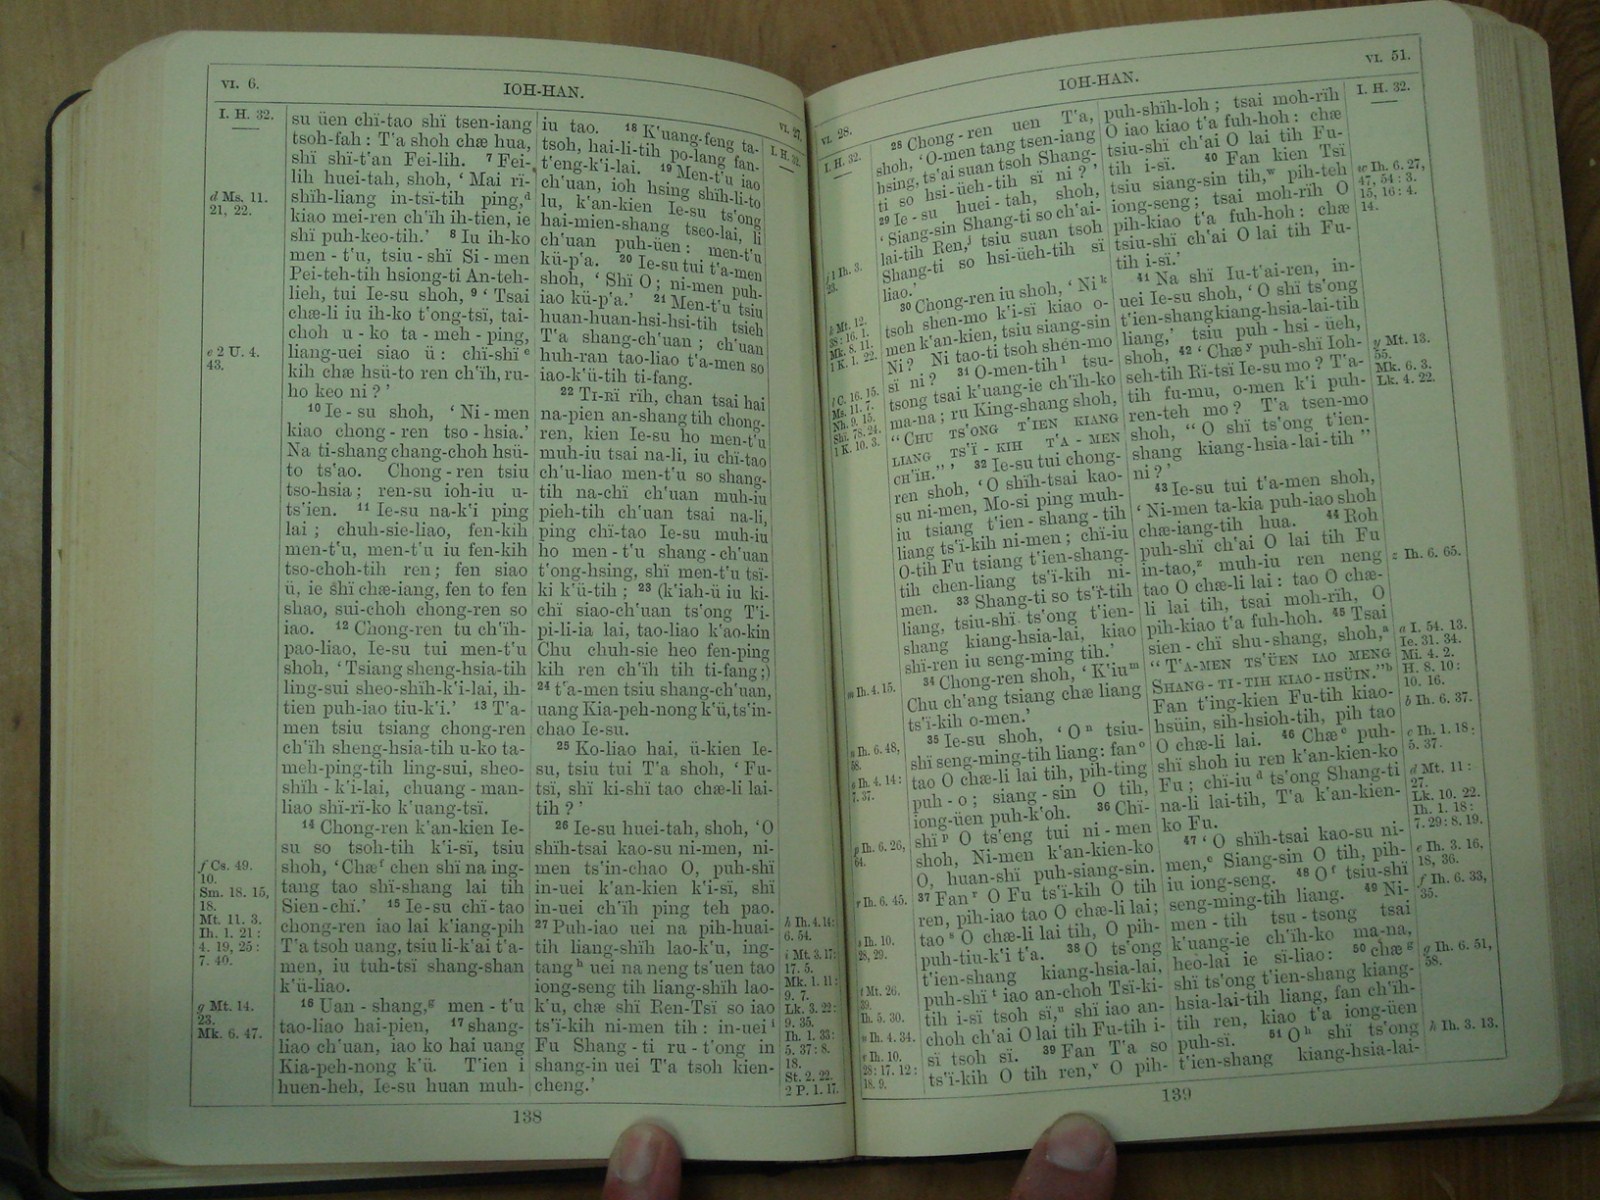 VI. 6.
IOH-HAN.
VI. 27.
I. H. 32.
I. H. 32.
d Ms. 11.
21, 22.
e 2 U. 4.
43.
f Cs. 49.
10.
Sm. 18. 15,
18.
Mt. 11. 3.
Ih. 1. 21:
4. 19, 25:
7. 40.
g Mt. 14.
23.
Mk. 6. 47.
su üen chï-tao shï tsen-iang
tsoh-fah: T'a shoh chæ hua,
shï shï-t'an Fei-lih. 7 Fei-
lih huei-tah, shoh, ‘Mai rï-
shïh-liang in-tsï-tih ping,d
kiao mei-ren ch'ïh ih-tien, ie
shï puh-keo-tih.’ 8 Iu ih-ko
men-t'u, tsiu-shï Si-men
Pei-teh-tih hsiong-ti An-teh-
lieh, tui Ie-su shoh, 9 ‘Tsai
chæ-li iu ih-ko t'ong-tsï, tai-
choh u-ko ta-meh-ping,
liang-uei siao ü: chï-shï e
kih chæ hsü-to ren ch'ïh, ru-
ho keo ni?’
10 Ie-su shoh, ‘Ni-men
kiao chong-ren tso-hsia.’
Na ti-shang chang-choh hsü-
to ts'ao. Chong-ren tsiu
tso-hsia; ren-su ioh-iu u-
ts'ien. 11 Ie-su na-k'i ping
lai; chuh-sie-liao, fen-kih
men-t'u, men-t'u iu fen-kih
tso-choh-tih ren; fen siao
ü, ie shï chæ-iang, fen to fen
shao, sui-choh chong-ren so
iao. 12 Chong-ren tu ch'ïh-
pao-liao, Ie-su tui men-t'u
shoh, ‘Tsiang sheng-hsia-tih
ling-sui sheo-shïh-k'i-lai, ih-
tien puh-iao tiu-k'i.’ 13 T'a-
men tsiu tsiang chong-ren
ch'ïh sheng-hsia-tih u-ko ta-
meh-ping-tih ling-sui, sheo-
shïh-k'i-lai, chuang-man-
liao shï-rï-ko k'uang-tsï.
14 Chong-ren k'an-kien Ie-
su so tsoh-tih k'i-sï, tsiu
shoh, ‘Chæ f chen shï na ing-
tang tao shï-shang lai tih
Sien-chï.’ 15 Ie-su chï-tao
chong-ren iao lai k'iang-pih
T'a tsoh uang, tsiu li-k'ai t'a-
men, iu tuh-tsï shang-shan
k'ü-liao.
16 Uan-shang,g men-t'u
tao-liao hai-pien, 17 shang-
liao ch'uan, iao ko hai uang
Kia-peh-nong k'ü. T'ien i
huen-heh, Ie-su huan muh-
iu tao. 18 K'uang-feng ta-
tsoh, hai-li-tih po-lang fan-
t'eng-k'i-lai. 19 Men-t'u iao
ch'uan, ioh hsing shïh-li-to
lu, k'an-kien Ie-su ts'ong
hai-mien-shang tseo-lai, li
ch'uan puh-üen: men-t'u
kü-p'a. 20 Ie-su tui t'a-men
shoh, ‘Shï O; ni-men puh-
iao kü-p'a.’ 21 Men-t'u tsiu
huan-huan-hsi-hsi-tih tsieh
T'a shang-ch'uan; ch'uan
huh-ran tao-liao t'a-men so
iao-k'ü-tih ti-fang.
22 TI-RÏ rïh, chan tsai hai
na-pien an-shang tih chong-
ren, kien Ie-su ho men-t'u
muh-iu tsai na-li, iu chï-tao
ch'u-liao men-t'u so shang-
tih na-chï ch'uan muh-iu
pieh-tih ch'uan tsai na-li,
ping chï-tao Ie-su muh-iu
ho men-t'u shang-ch'uan
t'ong-hsing, shï men-t'u tsï-
ki k'ü-tih; 23 (k'iah-ü iu ki-
chï siao-ch'uan ts'ong T'i-
pi-li-ia lai, tao-liao k'ao-kin
Chu chuh-sie heo fen-ping
kih ren ch'ïh tih ti-fang;)
24 t'a-men tsiu shang-ch'uan,
uang Kia-peh-nong k'ü, ts'in-
chao Ie-su.
25 Ko-liao hai, ü-kien Ie-
su, tsiu tui T'a shoh, ‘Fu-
tsï, shï ki-shï tao chæ-li lai-
tih?’
26 Ie-su huei-tah, shoh, ‘O
shïh-tsai kao-su ni-men, ni-
men ts'in-chao O, puh-shï
in-uei k'an-kien k'i-sï, shï
in-uei ch'ïh ping teh pao.
27 Puh-iao uei na pih-huai-
tih liang-shïh lao-k'u, ing-
tang h uei na neng ts'uen tao
iong-seng tih liang-shïh lao-
k'u, chæ shï Ren-Tsï so iao
ts'ï-kih ni-men tih: in-uei i
Fu Shang-ti ru-t'ong in
shang-in uei T'a tsoh kien-
cheng.’
h Ih. 4. 14:
6. 54.
i Mt. 3. 17:
17. 5.
Mk. 1. 11:
9. 7.
Lk. 3. 22:
9. 35.
Ih. 1. 33:
5. 37: 8.
18.
St. 2. 22.
2 P. 1. 17.
138
VI. 28.
IOH-HAN.
VI. 51.
I. H. 32.
I. H. 32.
j 1 Ih. 3.
23.
k Mt. 12.
38: 16. 1.
Mk. 8. 11.
1 K. 1. 22.
l C. 16. 15.
Ms. 11. 7.
Nh. 9. 15.
Shï. 78. 24.
1 K. 10. 3.
m Ih. 4. 15.
n Ih. 6. 48,
58.
o Ih. 4. 14:
7. 37.
p Ih. 6. 26,
64.
r Ih. 6. 45.
s Ih. 10.
28, 29.
t Mt. 26.
39.
Ih. 5. 30.
u Ih. 4. 34.
v Ih. 10.
28: 17. 12:
18. 9.
28 Chong-ren uen T'a,
shoh, ‘O-men tang tsen-iang
hsing, ts'ai suan tsoh Shang-
ti so hsi-üeh-tih sï ni?’
29 Ie-su huei-tah, shoh,
‘Siang-sin Shang-ti so ch'ai-
lai-tih Ren,j tsiu suan tsoh
Shang-ti so hsi-üeh-tih sï
liao.’
30 Chong-ren iu shoh, ‘Ni k
tsoh shen-mo k'i-sï kiao o-
men k'an-kien, tsiu siang-sin
Ni? Ni tao-ti tsoh shen-mo
sï ni? 31 O-men-tih l tsu-
tsong tsai k'uang-ie ch'ïh-ko
ma-na; ru King-shang shoh,
“CHU TS'ONG T'IEN KIANG
LIANG TS'Ï-KIH T'A-MEN
CH'ÏH.”’ 32 Ie-su tui chong-
ren shoh, ‘O shïh-tsai kao-
su ni-men, Mo-si ping muh-
iu tsiang t'ien-shang-tih
liang ts'ï-kih ni-men; chï-iu
O-tih Fu tsiang t'ien-shang-
tih chen-liang ts'ï-kih ni-
men. 33 Shang-ti so ts'ï-tih
liang, tsiu-shï ts'ong t'ien-
shang kiang-hsia-lai, kiao
shï-ren iu seng-ming tih.’
34 Chong-ren shoh, ‘K'iu m
Chu ch'ang tsiang chæ liang
ts'ï-kih o-men.’
35 Ie-su shoh, ‘O n tsiu-
shï seng-ming-tih liang: fan o
tao O chæ-li lai tih, pih-ting
puh-o; siang-sin O tih,
iong-üen puh-k'oh. 36 Chï-
shï p O ts'eng tui ni-men
shoh, Ni-men k'an-kien-ko
O, huan-shï puh-siang-sin.
37 Fan r O Fu ts'ï-kih O tih
ren, pih-iao tao O chæ-li lai;
tao s O chæ-li lai tih, O pih-
puh-tiu-k'i t'a. 38 O ts'ong
t'ien-shang kiang-hsia-lai,
puh-shï t iao an-choh Tsï-ki-
tih i-sï tsoh sï,u shï iao an-
choh ch'ai O lai tih Fu-tih i-
sï tsoh sï. 39 Fan T'a so
ts'ï-kih O tih ren,v O pih-
puh-shïh-loh; tsai moh-rïh
O iao kiao t'a fuh-hoh: chæ
tsiu-shï ch'ai O lai tih Fu-
tih i-sï. 40 Fan kien Tsï
tsiu siang-sin tih,w pih-teh
iong-seng; tsai moh-rïh O
pih-kiao t'a fuh-hoh: chæ
tsiu-shï ch'ai O lai tih Fu-
tih i-sï.’
41 Na shï Iu-t'ai-ren, in-
uei Ie-su shoh, ‘O shï ts'ong
t'ien-shang kiang-hsia-lai-tih
liang,’ tsiu puh-hsi-üeh,
shoh, 42 ‘Chæ y puh-shï Ioh-
seh-tih Rï-tsï Ie-su mo? T'a-
tih fu-mu, o-men k'i puh-
ren-teh mo? T'a tsen-mo
shoh, “O shï ts'ong t'ien-
shang kiang-hsia-lai-tih”
ni?’
43 Ie-su tui t'a-men shoh,
‘Ni-men ta-kia puh-iao shoh
chæ-iang-tih hua. 44 Roh
puh-shï ch'ai O lai tih Fu
in-tao,z muh-iu ren neng
tao O chæ-li lai: tao O chæ-
li lai tih, tsai moh-rïh, O
pih-kiao t'a fuh-hoh. 45 Tsai
sien-chï shu-shang, shoh,a
“T'A-MEN TS'ÜEN IAO MENG
SHANG-TI-TIH KIAO-HSÜIN.”b
Fan t'ing-kien Fu-tih kiao-
hsüin, sih-hsioh-tih, pih tao
O chæ-li lai. 46 Chæ c puh-
shï shoh iu ren k'an-kien-ko
Fu; chï-iu d ts'ong Shang-ti
na-li lai-tih, T'a k'an-kien-
ko Fu.
47 ‘O shïh-tsai kao-su ni-
men,e Siang-sin O tih, pih-
iu iong-seng. 48 O f tsiu-shï
seng-ming-tih liang. 49 Ni-
men-tih tsu-tsong tsai
k'uang-ie ch'ïh-ko ma-na,
heo-lai ie sï-liao: 50 chæ g
shï ts'ong t'ien-shang kiang-
hsia-lai-tih liang, fan ch'ïh-
tih ren, kiao t'a iong-üen
puh-sï. 51 O h shï ts'ong
t'ien-shang kiang-hsia-lai-
w Ih. 6. 27,
47, 54: 3.
15, 16: 4.
14.
y Mt. 13.
55.
Mk. 6. 3.
Lk. 4. 22.
z Ih. 6. 65.
a I. 54. 13.
Ie. 31. 34.
Mi. 4. 2.
H. 8. 10:
10. 16.
b Ih. 6. 37.
c Ih. 1. 18:
5. 37.
d Mt. 11:
27.
Lk. 10. 22.
Ih. 1. 18:
7. 29: 8. 19.
e Ih. 3. 16,
18, 36.
f Ih. 6. 33,
35.
g Ih. 6. 51,
58.
h Ih. 3. 13.
139